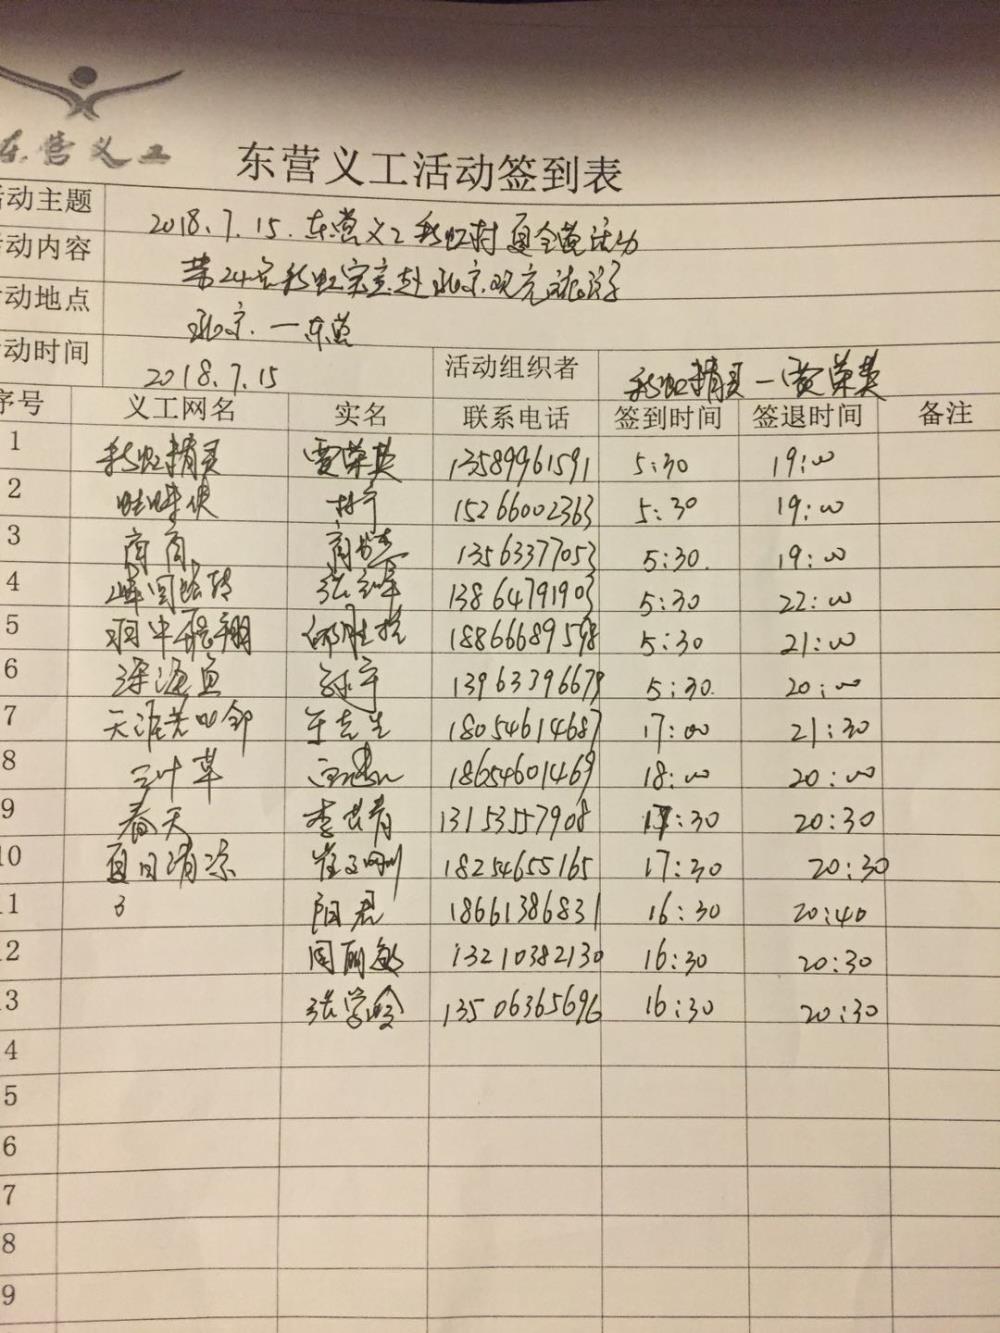 东营义工
东营义工活动签到表
活动主题 2018.7.15.东营义工彩虹村夏令营活动
活动内容 带24名彩虹宝宝赴北京观光旅游
活动地点 北京.一东营
活动时间 2018.7.15 活动组织者 彩虹精灵一贾荣英
序号 义工网名 实名 联系电话 签到时间 签退时间 备注
1 彩虹精灵 贾荣英 13589961591 5:30 19:00
2 15266002363 5:30 19:00
3 商商 13563377053 5:30. 19:00
4 峰回路转 张 峰 13864791903 5:30 22:00
5 羽中飞翔 18866689598 5:30 21:00
6 深海鱼 孙宁 13963396679 5:30. 20:00
7 天涯若比邻 于先生 18054614687 17:00 21:30
8 三叶草 18654601469 18:00 20:00
9 春天 李 青 13153557908 17:30 20:30
10 夏日清凉 崔文 18254655165 17:30 20:30
11 阳君 18661386831 16:30 20:40
12 周丽敏 13210382130 16:30 20:30
13 张学 13506365696 16:30 20:30
4
5
6
7
8
9